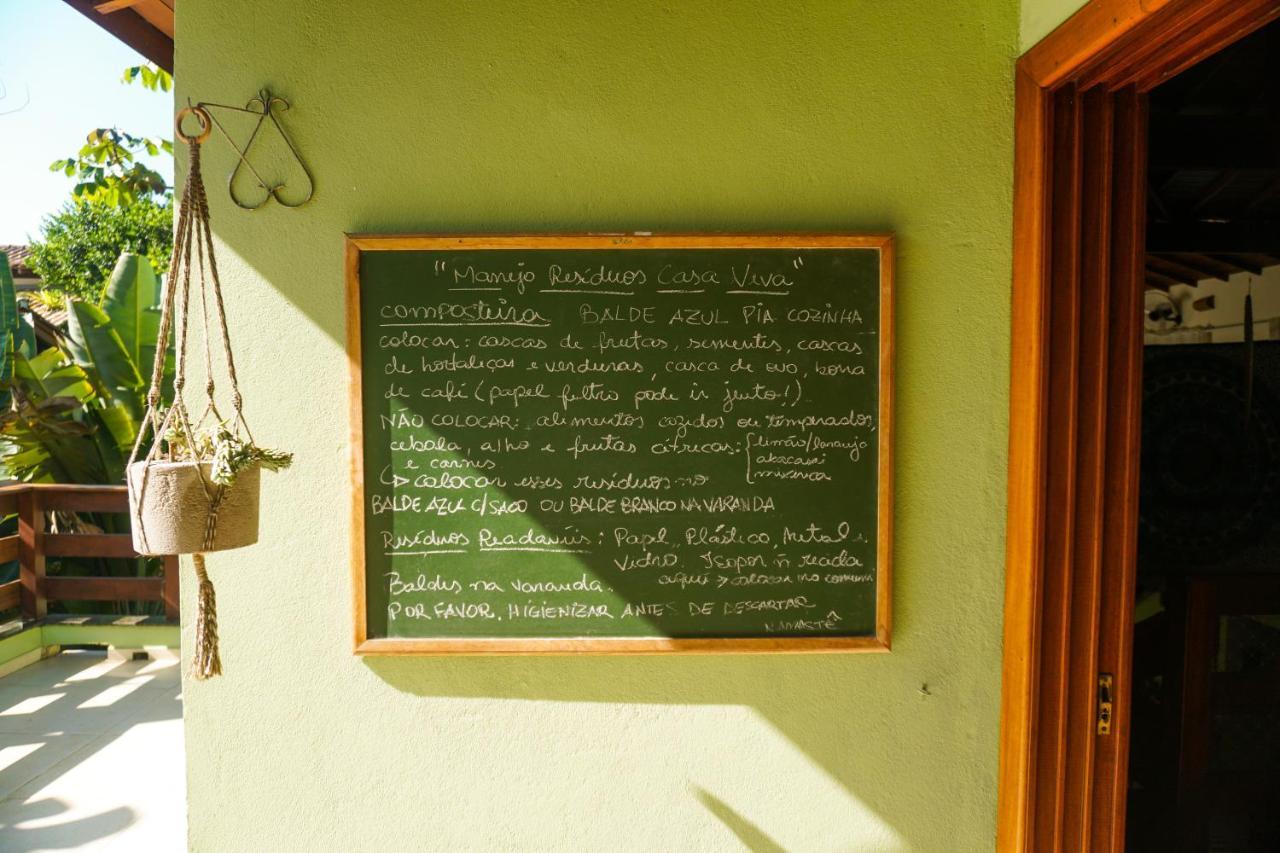 "Manejo Resíduos Casa Viva"
composteira BALDE AZUL PIA COZINHA
colocar: cascas de frutas, sementes, cascas
de hortaliças e verduras, casca de ovo, borra
de café (papel filtro pode ir junto!)
NÃO COLOCAR: alimentos cozidos ou temperados,
cebola, alho e frutas cítricas: { limão/laranja
abacaxi
mixirica
e carnes
↳ colocar esses resíduos no
BALDE AZUL C/SACO OU BALDE BRANCO NA VARANDA
Resíduos Recicláveis: Papel, Plástico, Metal e
Vidro. Isopor ñ recicla
aqui → colocar no comum
Baldes na varanda.
POR FAVOR, HIGIENIZAR ANTES DE DESCARTAR
NAMASTÊ